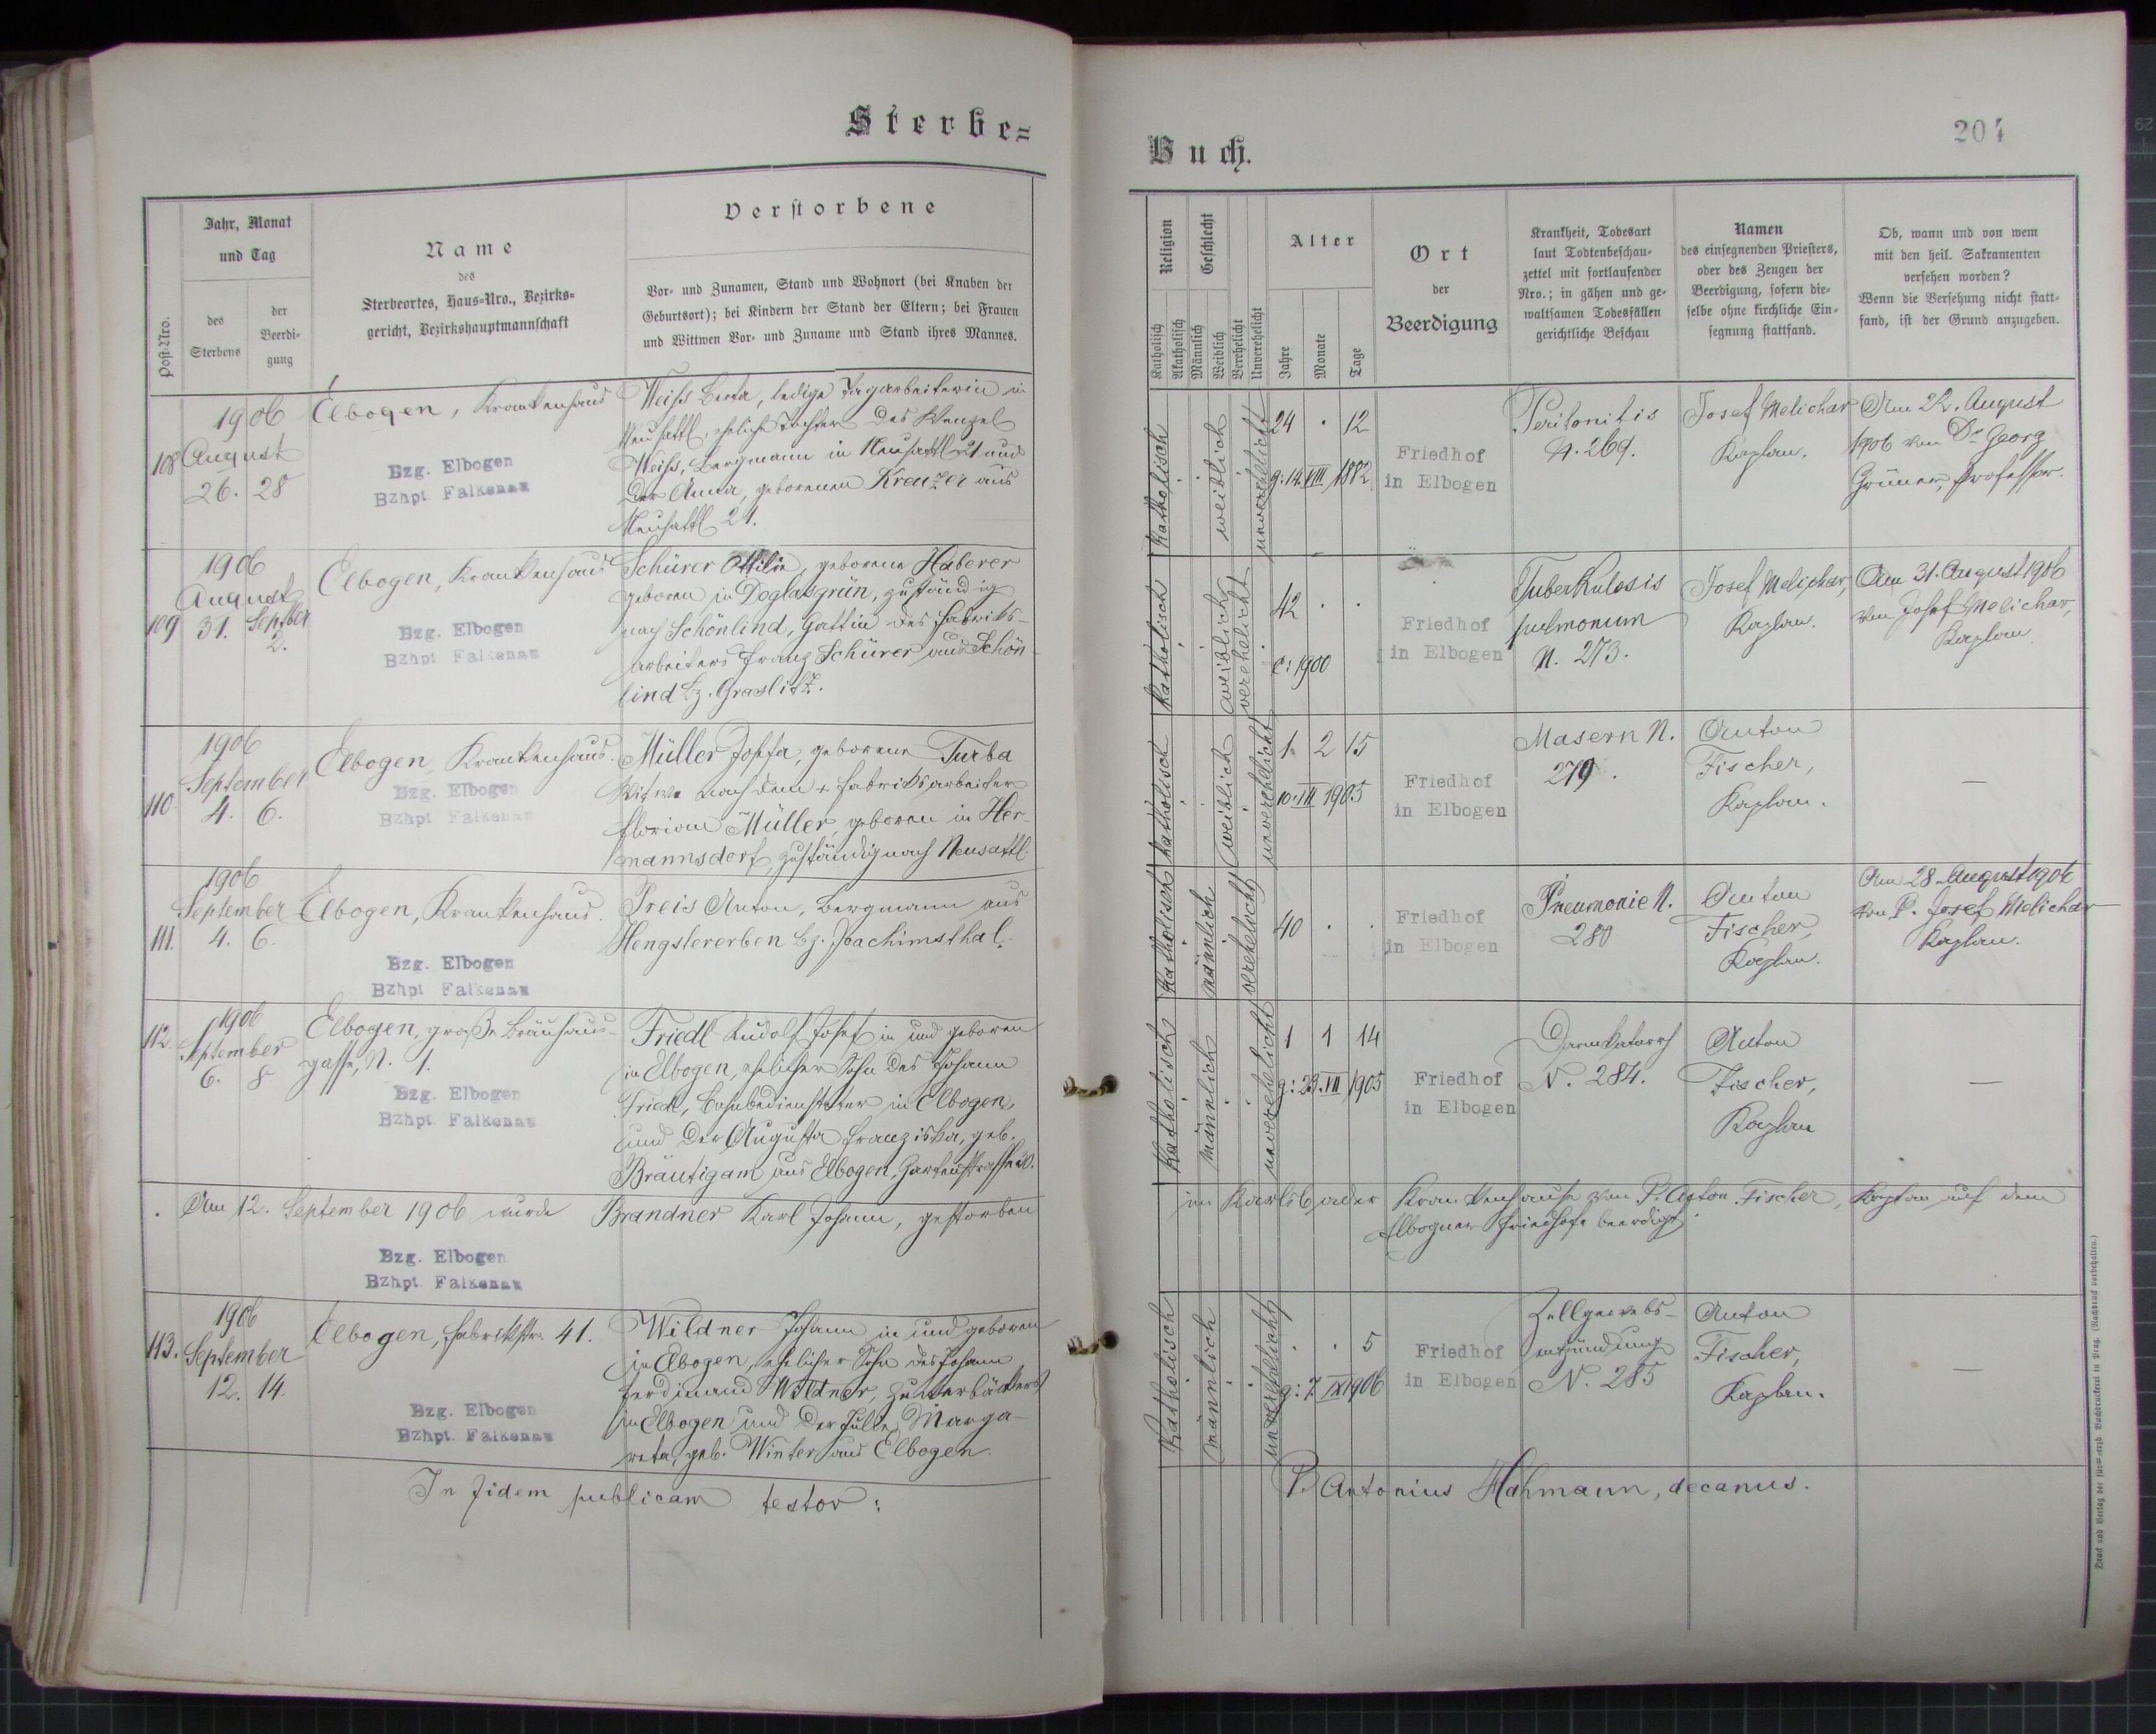 Sterbe=
Jahr, Monat
und Tag
Post-Nro.
des
Sterbens
der
Beerdi-
gung
Name
des
Sterbeortes, Haus-Nro., Bezirks-
gericht, Bezirkshauptmannschaft
Verstorbene
Vor- und Zunamen, Stand und Wohnort (bei Knaben der
Geburtsort); bei Kindern der Stand der Eltern; bei Frauen
und Wittwen Vor- und Zuname und Stand ihres Mannes.
108
1906
August
26. 28
Elbogen, Krankenhaus
Bzg. Elbogen
Bzhpt. Falkenau
Weiss Berta, ledige Tagarbeiterin in
Neusattl, eheliche Tochter des Wenzel
Weiss, Bergmann in Neusattl 21 und
der Anna, geborenen Kreuzer aus
Neusattl 21.
109
1906
August Septber
31. 2.
Elbogen, Krankenhaus
Bzg. Elbogen
Bzhpt Falkenau
Schürer Ottilie, geborene Haberer
geboren in Doglasgrün, zuständig
nach Schönlind, Gattin des Fabriks-
arbeiters Franz Schürer aus Schön-
lind Bz. Graslitz.
110
1906
September
4. 6.
Elbogen, Krankenhaus.
Bzg. Elbogen
Bzhpt Falkenau
Müller Josefa, geborene Turba
Witwe nach dem + Fabriksarbeiter
Florian Müller, geboren in Her-
mannsdorf, zuständig nach Neusattl.
111.
1906
September
4. 6.
Elbogen, Krankenhaus.
Bzg. Elbogen
Bzhpt Falkenau
Preis Anton, Bergmann aus
Hengstererben Bz. Joachimsthal.
112.
1906
September
6. 8
Elbogen, große Bräuhaus-
gasse, N. 1.
Bzg. Elbogen
Bzhpt. Falkenau
Friedl Rudolf Josef in und geboren
in Elbogen, ehelicher Sohn des Johann
Friedl, Bahnbediensteter in Elbogen,
und der Augusta Franziska, geb.
Bräutigam aus Elbogen, Gartenstrasse
Am 12. September 1906 wurde Brandner Karl Johann, gestorben
Bzg. Elbogen
Bzhpt Falkenau
113.
1906
September
12. 14.
Elbogen, Fabrikstr. 41.
Bzg. Elbogen
Bzhpt. Falkenau
Wildner Johann in und geboren
in Elbogen, ehelicher Sohn des Johann
Ferdinand Wildner, Zuckerbäckers
in Elbogen und der Julie Marga-
reta, geb. Winter aus Elbogen.
In fidem publicam testor:
Buch.
204
Religion
Katholisch
Akatholisch
Geschlecht
Männlich
Weiblich
Verehelicht
Unverehelicht
Alter
Jahre
Monate
Tage
Ort
der
Beerdigung
Krankheit, Todesart
laut Todtenbeschau-
zettel mit fortlaufender
Nro.; in gähen und ge-
waltsamen Todesfällen
gerichtliche Beschau
Namen
des einsegnenden Priesters,
oder des Zeugen der
Beerdigung, sofern die-
selbe ohne kirchliche Ein-
segnung stattfand.
Ob, wann und von wem
mit den heil. Sakramenten
versehen worden?
Wenn die Versehung nicht statt-
fand, ist der Grund anzugeben.
katholisch
weiblich
unverehelicht
24 . 12
g: 14. VIII 1882
Friedhof
in Elbogen
Peritonitis
N. 269.
Josef Melichar
Kaplan.
Am 22. August
1906 von Dr Georg
Grüner, Professor.
katholisch
weiblich
verehelicht
42 . .
c: 1900
Friedhof
in Elbogen
Tuberkulosis
pulmonum
N. 273.
Josef Melichar,
Kaplan.
Am 31. August 1906
von Josef Melichar,
Kaplan.
katholisch
weiblich
unverehelicht
1. 2 15
Friedhof
in Elbogen
Masern N.
279.
Anton
Fischer,
Kaplan.
—
katholisch
männlich
verehelicht
40 . .
Friedhof
in Elbogen
Pneumonie N.
280
Anton
Fischer,
Kaplan.
Am 28. August 1906
von P. Josef Melichar
Kaplan.
katholisch
männlich
unverehelicht
1 1 14
g: 23. VII 1905
Friedhof
in Elbogen
Darmkatarrh
N. 284.
Anton
Fischer,
Kaplan
—
im Karlsbader Krankenhause von P. Anton Fischer, Kaplan auf dem
Elbogner Friedhofe beerdigt.
katholisch
männlich
unverehelicht
. . 5
g: 7. IX 1906
Friedhof
in Elbogen
Zellgewebs-
entzündung
N. 285
Anton
Fischer,
Kaplan.
—
P. Antonius Hahmann, decanus.
Druck und Verlag der fürst-erzb. Buchdruckerei in Prag. (Nachdruck vorbehalten.)